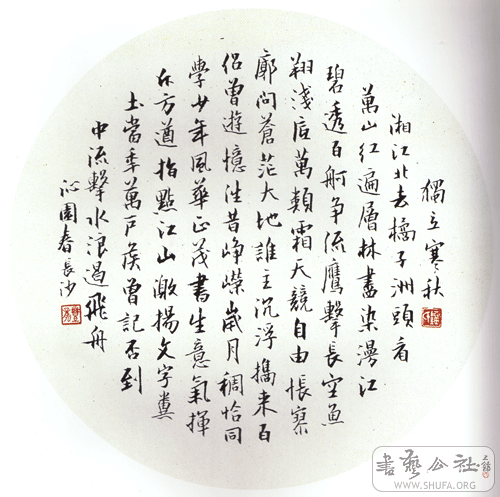 獨立寒秋
湘江北去橘子洲頭看
萬山紅遍層林盡染漫江
碧透百舸爭流鷹擊長空魚
翔淺底萬類霜天競自由悵寥
廓問蒼茫大地誰主沉浮攜來百
侶曾遊憶往昔崢嶸歲月稠恰同
學少年風華正茂書生意氣揮
斥方遒指點江山激揚文字糞
土當年萬戶侯曾記否到
中流擊水浪遏飛舟
沁園春長沙
書藝公社
WWW.SHUFA.ORG